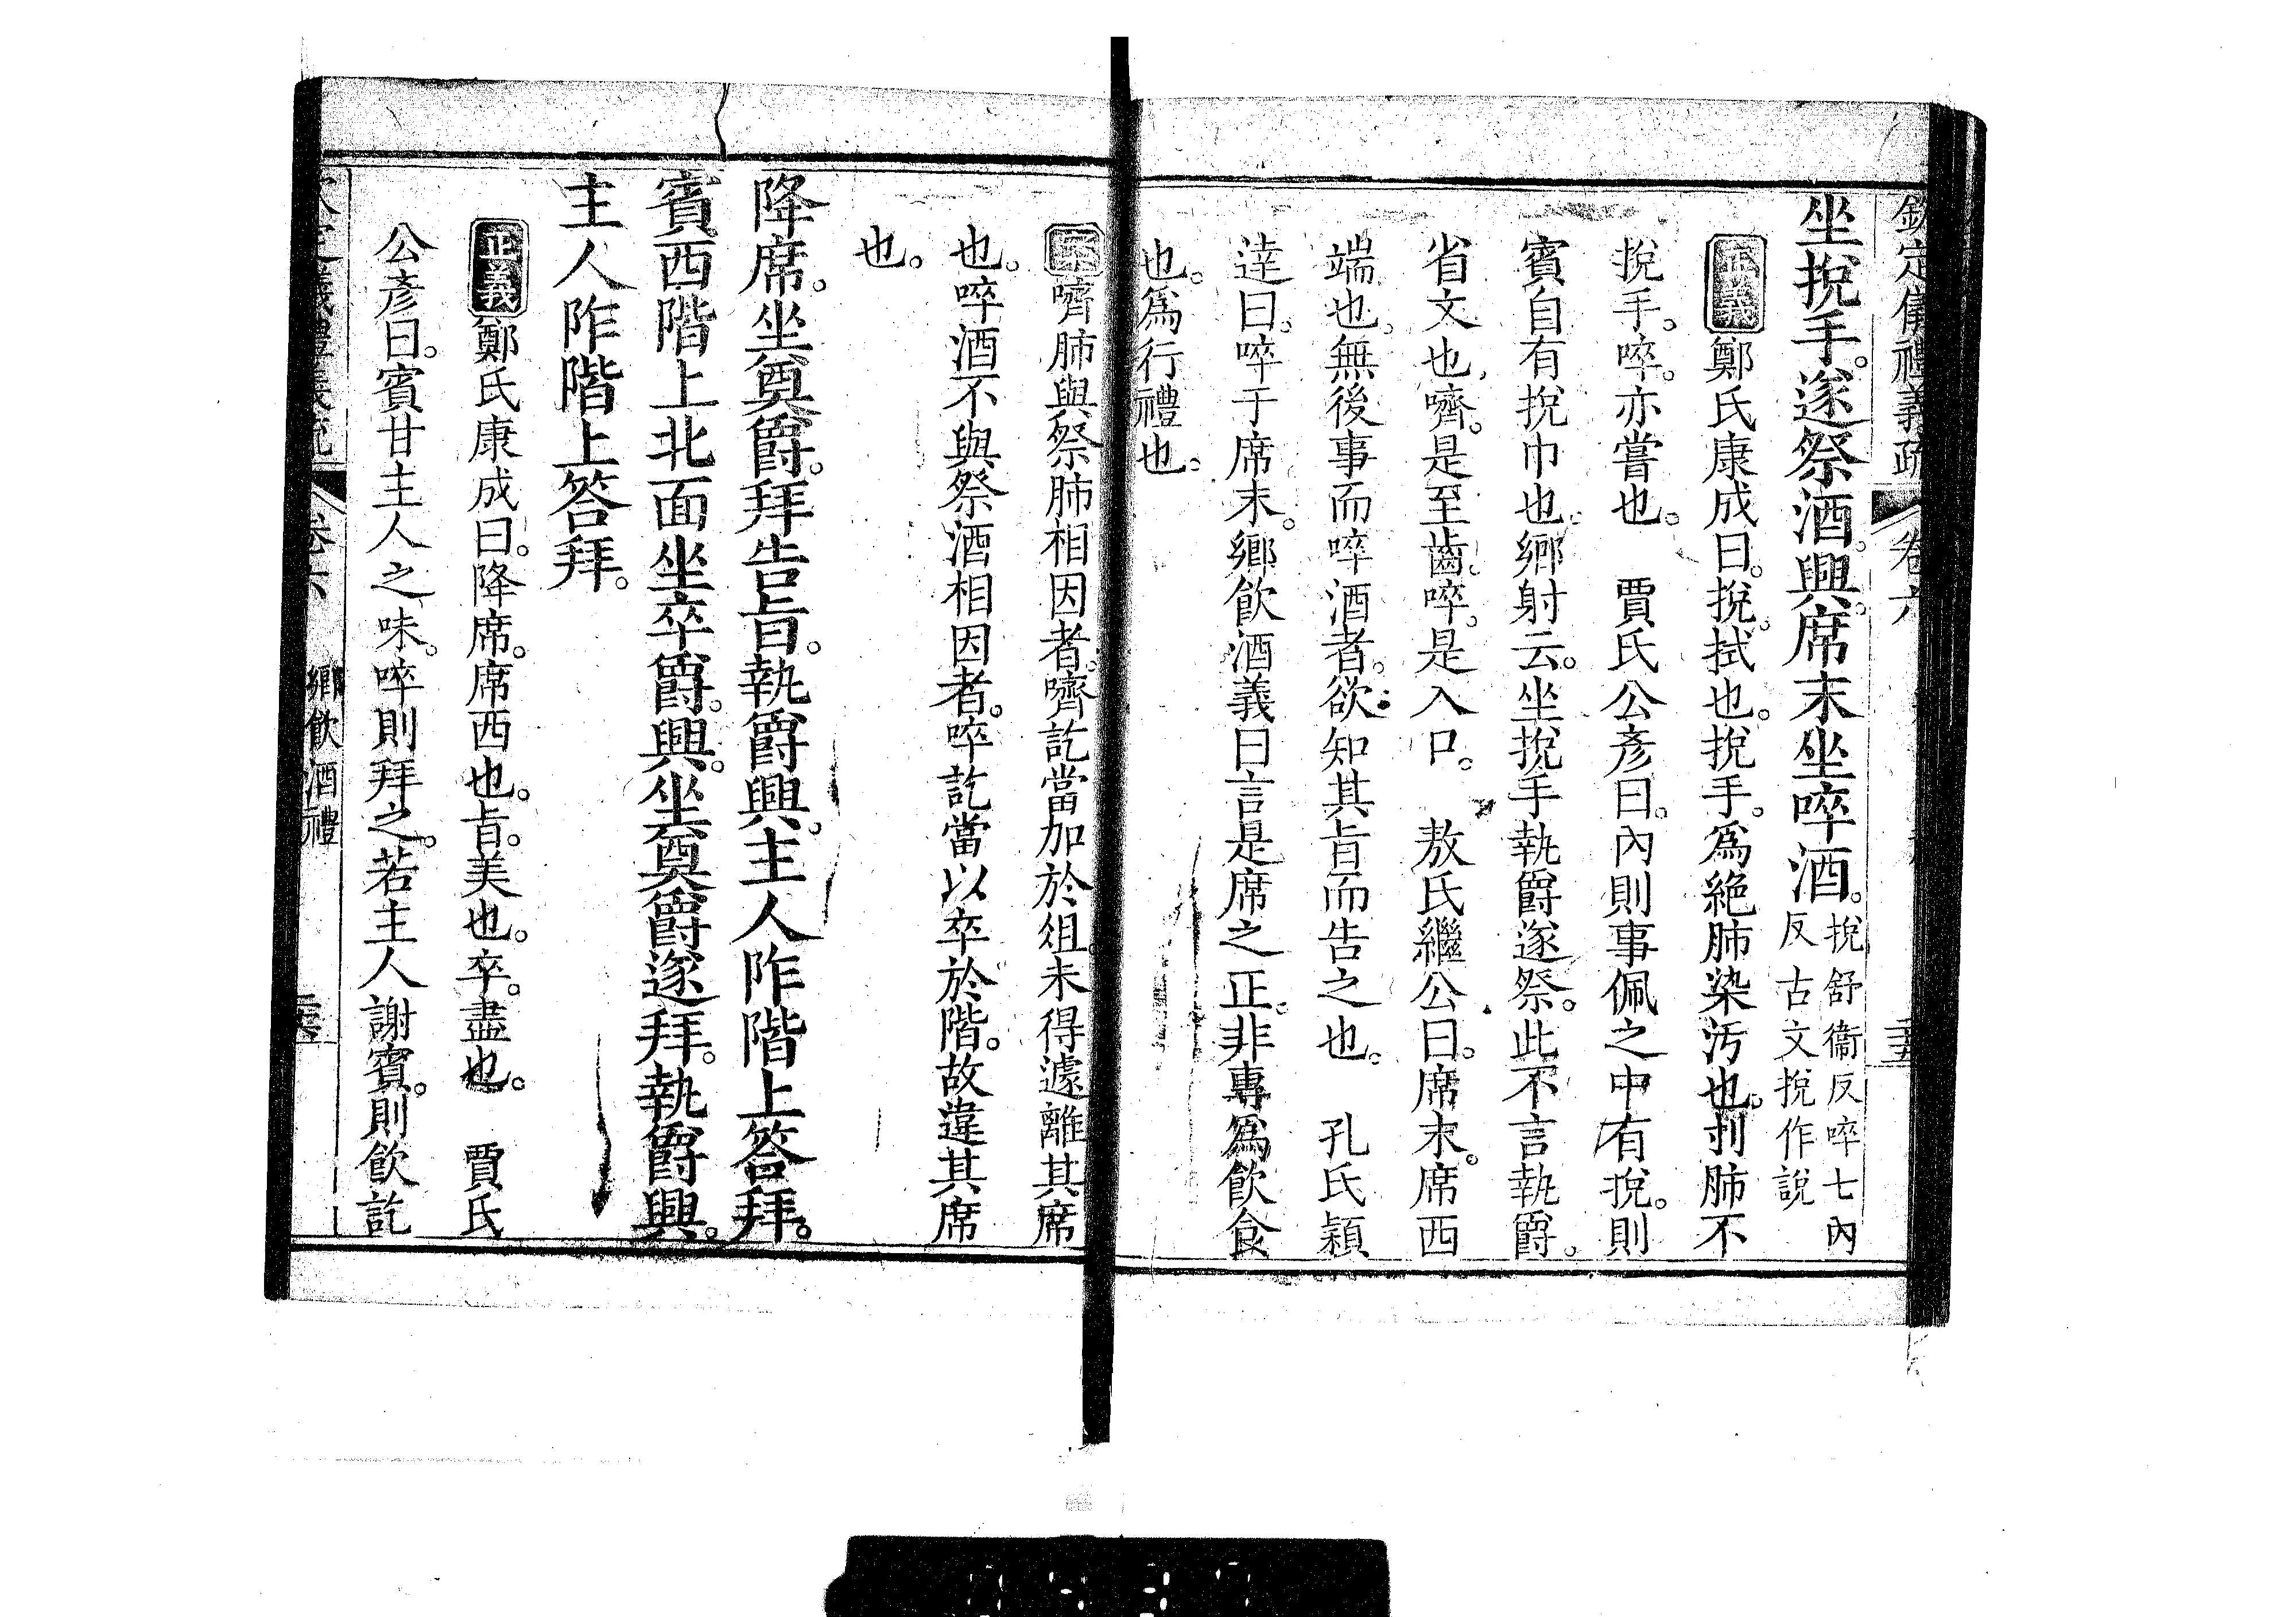 欽定儀禮義疏 卷六 三五
坐挩手。遂祭酒。興。席末坐啐酒。挩舒銳反啐七內反古文挩作說
正義鄭氏康成曰。挩。拭也。挩手。爲絶肺染汚也。刌肺不
挩手。啐。亦嘗也。 賈氏公彥曰。內則事佩之中有挩。則
賓自有挩巾也。鄉射云。坐挩手執爵遂祭。此不言執爵。
省文也。嚌。是至齒。啐。是入口。 敖氏繼公曰。席末。席西
端也。無後事而啐酒者。欲知其旨而告之也。 孔氏穎
逹曰。啐于席末。鄉飮酒義曰言是席之正。非專爲飮食
也。爲行禮也。
嚌肺與祭肺相因者。嚌訖當加於俎。未得遽離其席
也。啐酒不與祭酒相因者。啐訖當以卒於階。故違其席
也。
降席。坐奠爵。拜告旨。執爵興。主人阼階上答拜。
賓西階上北面坐卒爵。興。坐奠爵遂拜。執爵興。
主人阼階上答拜。
正義鄭氏康成曰。降席。席西也。旨。美也。卒。盡也。 賈氏
公彥曰。賓甘主人之味。啐則拜之。若主人謝賓。則飮訖
欽定儀禮義疏 卷六 鄉飮酒禮